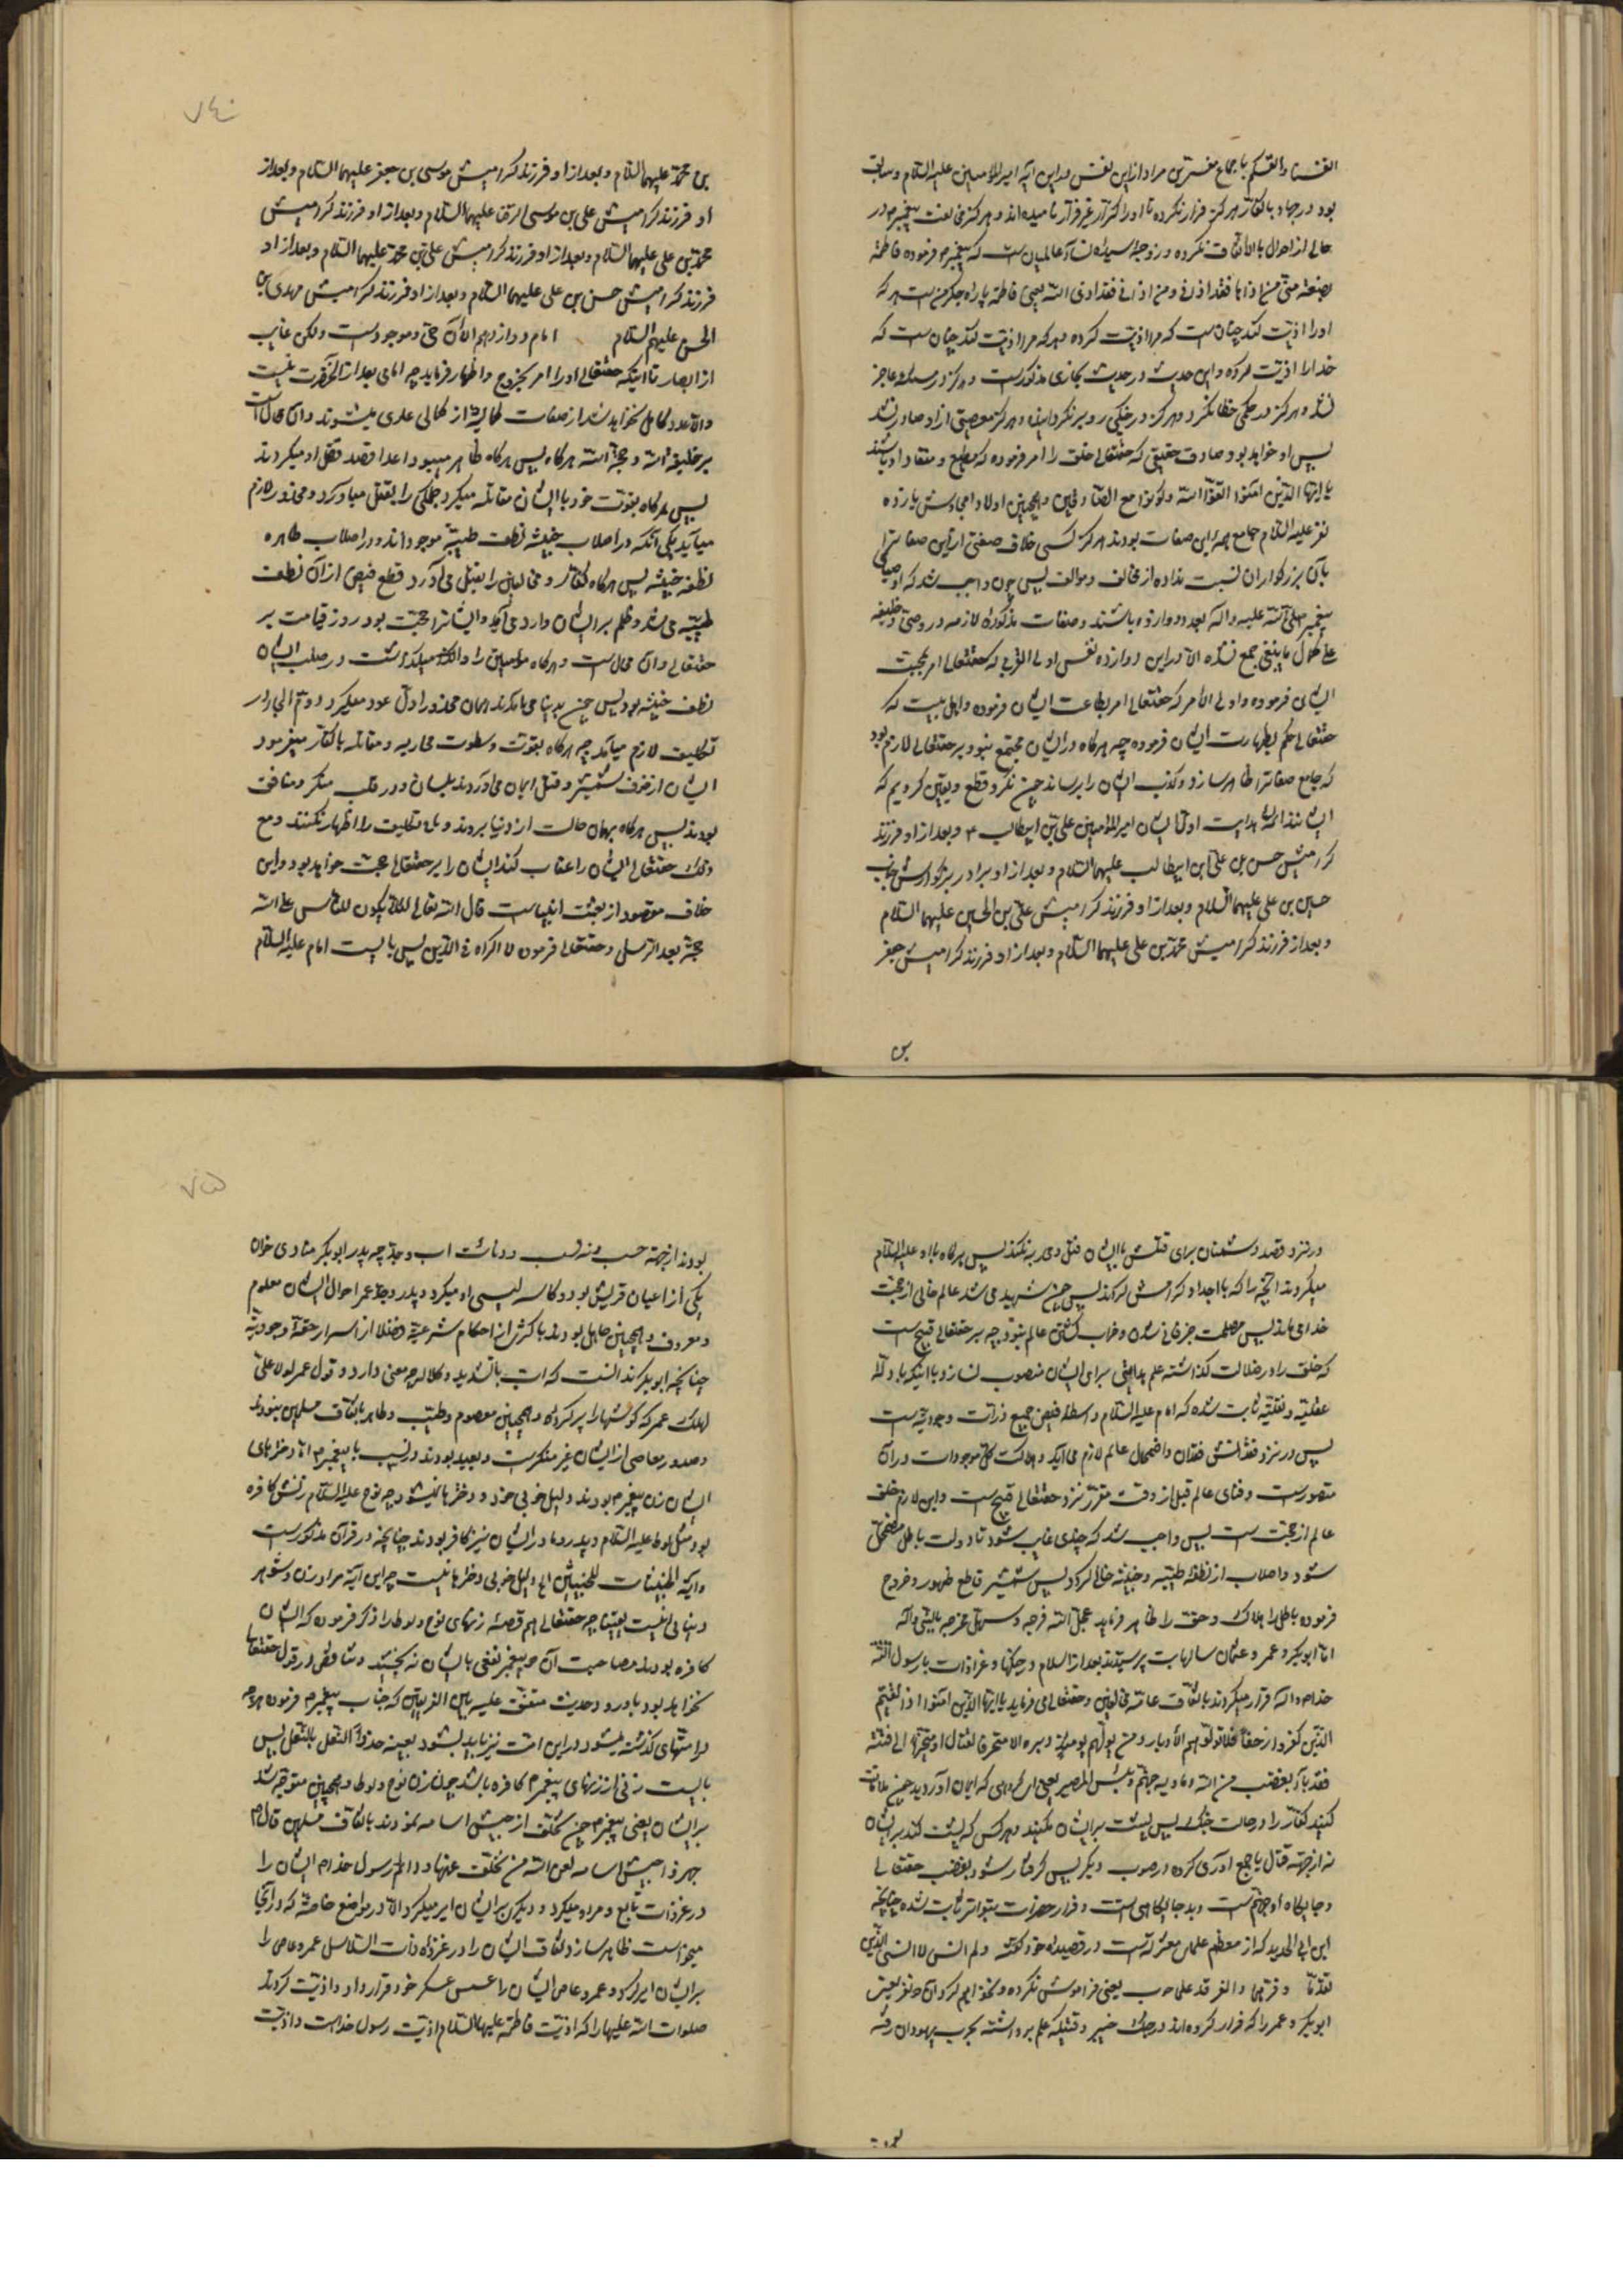 انفسنا وانفسکم باجماع مفسرین مراد ازین نفس دراین آیه امیرالمؤمنین علیه السلام وسابق
بود درجهاد باکفار هرکز فرار نکرده تا اورا کرّار غیر فرّار نامیده اند وهرکز مخالفت پیغمبر م در
حالی از احوال بالاتفاق نکرده وزوجه سیده نسآء عالمیان است که پیغمبر م فرموده فاطمة
بضعة منّی من اذاها فقد اذانی ومن اذانی فقد اذی الله یعنی فاطمه پاره جکر من است هرکه
اورا اذیّت کند چنان است که مرا اذیت کرده وهرکه مرا اذیت کند چنان است که
خدارا اذیت کرده واین حدیث در حدیث بخاری مذکور است وهرکز در مسئله عاجز
نشد وهرکز در حکمی خطا نکرد وهرکز در جنکی رو بر نکردانیده وهرکز معصیتی از او صادر نشد
پس او خواهد بود صادق حقیقی که حقتعالی خلق را امر فرموده که مطیع ومنقاد او باشند
یا ایها الذین امنوا اتقوا الله وکونوا مع الصادقین وهمچنین اولاد امجادش یازده
نفر علیه السلام جامع همه این صفات بودند هرکز کسی خلاف صفتی از این صفات را
بآن بزرکواران نسبت نداده از مخالف وموالف پس چون واجب شد که اوصیای
پیغمبر صلی الله علیه واله بعدد دوازده باشند وصفات مذکوره لازمه در وصی وخلیفه
علی کمال ما ینبغی جمع نشده الا دراین دوازده نفس اولی القربی که حقتعالی امر بمحبت
ایشان فرموده واولی الامر که حقتعالی امر بطاعت ایشان فرموده واهل بیت که
حقتعالی حکم بطهارت ایشان فرموده چه هرکاه در ایشان مجتمع نبود بر حقتعالی لازم بود
که جامع صفات را ظاهر سازد وکذب ایشان را برساند چون نکرد قطع ویقین کردیم که
ایشانند ائمه هدایت اوّل ایشان امیرالمؤمنین علی بن ابیطالب ۴ وبعد از او فرزند
کرامیش حسن بن علی ابن ابیطالب علیهما السلام وبعد از او برادر بزرکوارش جناب
حسین بن علی علیهما السلام وبعد از او فرزند کرامیش علی بن الحسین علیهما السلام
وبعد از فرزند کرامیش محمد بن علی علیهما السلام وبعد از او فرزند کرامیش جعفر
بن
۷۴
بن محمد علیهما السلام وبعد از او فرزند کرامیش موسی بن جعفر علیهما السلام وبعد از
او فرزند کرامیش علی بن موسی الرضا علیهما السلام وبعد از او فرزند کرامیش
محمد بن علی علیهما السلام وبعد از او فرزند کرامیش علی بن محمد علیهما السلام وبعد از او
فرزند کرامیش حسن بن علی علیهما السلام وبعد از او فرزند کرامیش مهدی بن
الحسن علیهم السلام امام دوازدهم الآن حی وموجود است ولکن غایب
از ابصار تا اینکه حقتعالی اورا امر بخروج واظهار فرماید چه امامی بعد از آنحضرت نیست
والا عدد کامل نخواهد شد از صفات کمالیه از کمالی عاری میشوند وآن محال است
بر خلیفة الله وحجة الله هرکاه پس هرکاه ظاهر میبود اعدا قصد قتل او میکردند
پس هرکاه بقوت خود با ایشان مقاتله میکرد جملکی را بقتل میاورد دو محذور لازم
میآید یکی آنکه در اصلاب خبیثه نطف طیبه موجود اند ودر اصلاب طاهره
نطفه خبیثه پس هرکاه کفار ومخالفین را بقتل می آورد قطع فیض از آن نطف
طیبه می شد وظلم بر ایشان وارد می آید وایشانرا حجت بود روز قیامت بر
حقتعالی وآن محال است وهرکاه مؤمنین را وا میکذاشت در صلب ایشان
نطف خبیثه بود پس چون بدنیا می آمدند همان محذور اول عود میکرد دوّم الجاء در
تکلیف لازم میآید چه هرکاه بقوت وسطوت محاربه ومقاتله با کفار میفرمود
ایشان از خوف شمشیر وقتل ایمان می آوردند بلسان ودر قلب منکر ومنافق
بودند پس هرکاه بهمان حالت از دنیا بروند وبلا تکلیف را اظهار نکنند ومع
ذلک حقتعالی ایشان را عقاب کند ایشان را بر حقتعالی حجت خواهد بود واین
خلاف مقصود از بعثت انبیا است قال الله تعالی لئلا یکون للناس علی الله
حجة بعد الرسل وحقتعالی فرموده لا اکراه فی الدین پس بایست امام علیه السلام
در نزد قصد دشمنان برای قتلش با ایشان قتل وحربه نکند پس هرکاه با او علیه السلام
میکردند آنچه را که با اجداد کرامش کردند پس چون شهید می شد عالم خالی از حجت
خدا می ماند پس مصلحت جز فانی شدن وخراب کشتن عالم نبود چه بر حقتعالی قبیح است
که خلق را در ضلالت کذاشته علم هدایتی برای ایشان منصوب نسازد با اینکه بادله
عقلیه ونقلیه ثابت شده که امام علیه السلام واسطه فیض جمیع ذرات وجودیه است
پس در نزد فقدانش فقدان واضمحلال عالم لازم می آید وهلاکت کل موجودات در آن
متصور است وفنای عالم قبل از وقت مقرر نزد حقتعالی قبیح است واین لازم خلوّ
عالم از حجت است پس واجب شد که چندی غایب شود تا دولت باطل مضمحل
شود واصلاب از نطفه طیبه وخبیثه خالی کردد پس شمشیر قاطع ظهور وخروج
فرموده باطل را هلاک وحق را ظاهر فرماید عجل الله فرجه وسهل مخرجه بالنبی وآله
امّا ابوبکر وعمر وعثمان سالها بت پرستیدند بعد از اسلام در جنکها وغزوات با رسول الله
خدا م والّه فرار میکردند باتفاق عامّه مخالفین وحقتعالی می فرماید یا ایها الذین امنوا اذا لقیتم
الذین کفروا زحفا فلا تولوهم الادبار ومن یولهم یومئذ دبره الا متحرفا لقتال او متحیزا الی فئته
فقد باء بغضب من الله وماویه جهنم وبئس المصیر یعنی ای کروهی که ایمان آوردید چون ملاقات
کنید کفار را در حالت جنک پس پشت بر ایشان مکنید وهرکس که پشت کند بر ایشان
نه از جهة قتال یا جمع آوری کرده در صوب دیکر پس کرفتار شود بغضب حقتعالی
وجایکاه او جهنم است وبد جایکاهی است وفرار حضرات بتواتر ثابت شده چنانچه
ابن ابی الحدید که از معظم علمای معتزله است در قصیده خود کفته ولم انس لا انسی الذین
تقدما وفرهما والفر قد علما حوب یعنی فراموش نکرده ونخواهم کرد آن دو نفر یعنی
ابوبکر وعمر را که فرار کرده اند در جنک خیبر وقتیکه علم برداشته بحرب یهودان رفته
بودند
۷۵
بودند از جهة حسب ونسب ودنائت اب وجد چه پدر ابوبکر منادی خوان
یکی از اعیان قریش بود وکاسه لیسی او میکرد وپدر وجد عمر احوال ایشان معلوم
ومعروف وهمچنین جاهل بودند باکثر از احکام شرعیه فضلا از اسرار حقه وجودیه
چنانچه ابوبکر ندانست که اب بالتشدید وکلاله چه معنی دارد وقول عمر لولا علی
لهلک عمر که کوشها را پر کرده وهمچنین معصوم وطیب وطاهر باتفاق مسلمین نبودند
وصدور معاصی از ایشان غیر منکر است وبعید بودند در نسب با پیغمبر م امّا دخترهای
ایشان زن پیغمبر م بودند دلیل خوبی خود ودخترها نمیشود چه نوح علیه السلام زنش کافره
بود ومثل لوط علیه السلام وپدر ومادر ایشان نیز کافر بودند چنانچه در قرآن مذکور است
وآیة الطیبات للطیبین الخ دلیل خوبی دخترها نیست چه این آیه مراد زن وشوهر
دنیائی نیست یقینا چه حقتعالی هم قصه زنهای نوح ولوط را ذکر فرموده که ایشان
کافره بودند مصاحبت آن دو پیغمبر نفعی بایشان نه بخشید وتناقض در قول حقتعالی
نخواهد بود باورود حدیث متفق علیه بین الفریقین که جناب پیغمبر م فرموده هرچه
در امتهای کذشته میشود در این امت نیز باید بشود بعینه حذو النعل بالنعل پس
بایست زنی از زنهای پیغمبر م کافره باشد چون زن نوح ولوط وهمچنین متوجه شد
بر ایشان لعن پیغمبر م چون تخلف از جیش اسامه نمودند باتفاق مسلمین قال م
جهزوا جیش اسامه لعن الله من تخلف عنها ودائم رسول خدا م ایشان را
در غزوات تابع ومراد میکرد ودیکری بر ایشان امیر میکرد الا در مواضع خاصه که در آنجا
میخواست ظاهر سازد نفاق ایشان را در غزوه ذات السلاسل عمرو عاص را
بر ایشان امیر کرد وعمرو عاص ایشان را عسس عسکر خود قرار داد واذیت کردند
صلوات الله علیها را که اذیت فاطمه علیها السلام اذیت رسول خداست واذیت